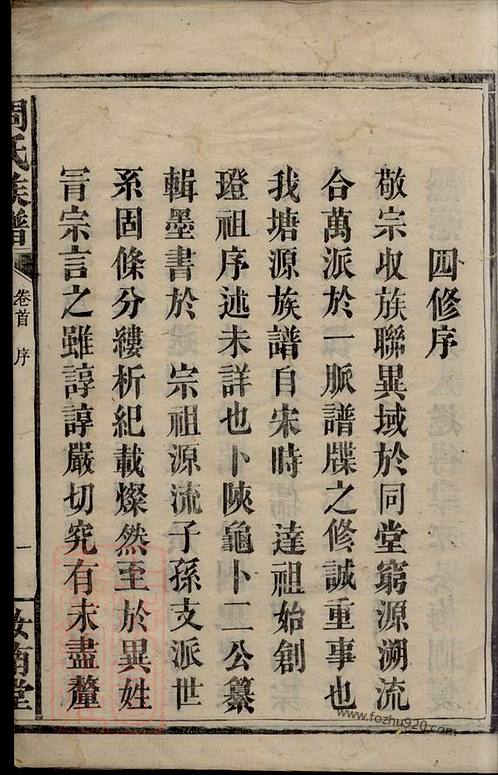 四修序
敬宗收族聯異域於同堂窮源溯流
合萬派於一脈譜牒之修誠重事也
我塘源族譜自宋時 達祖始創
璒祖序述未詳也卜陝龜卜二公纂
輯墨書於 宗祖源流子孫支派世
系固條分縷析紀載燦然至於異姓
冐宗言之雖諄諄嚴切究有未盡釐
周氏族譜
卷首 序
一
汝南堂
www.fozhu920.com